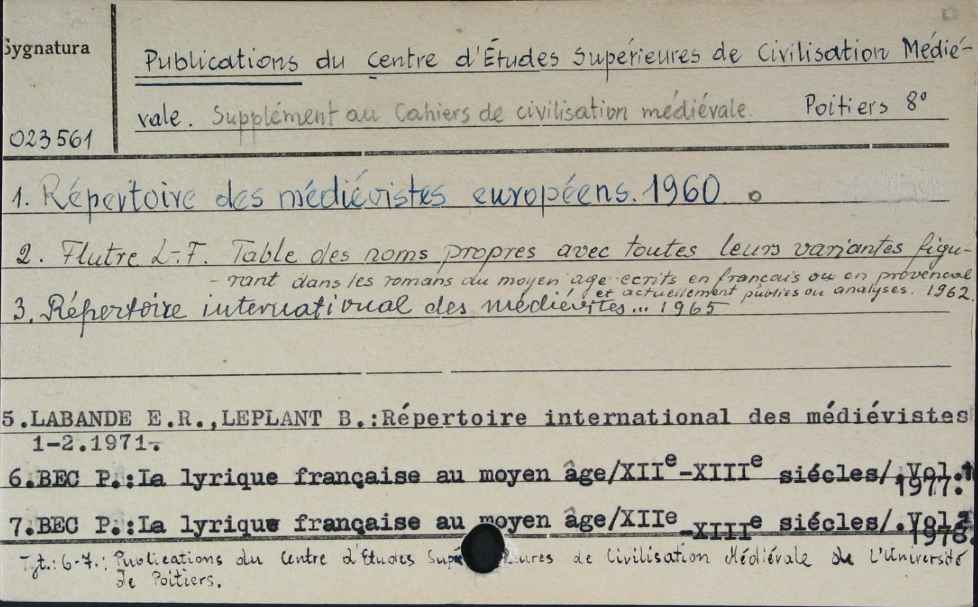 Sygnatura
Publications du Centre d'Études Supérieures de Civilisation Médié-
vale. Supplément au Cahiers de civilisation médiévale. Poitiers 8°
023561
1. Répertoire des médiévistes européens. 1960
2. Flutre L.-F. Table des noms propres avec toutes leurs variantes figu-
- rant dans les romans du moyen age ecrits en français ou en provencal
et actuellement publiés ou analyses. 1962
3. Répertoire international des mediévites... 1965
5.LABANDE E.R.,LEPLANT B.:Répertoire international des médiévistes
1-2.1971.
6.BEC P.:La lyrique française au moyen âge/XIIe-XIIIe siécles/.Vol.1
1977.
7.BEC P.:La lyrique française au moyen âge/XIIe-XIIIe siécles/.Vol.2
1978.
Tyt.: 6-7.: Publications du Centre d'Etudes Supé ures de Civilisation Médiévale de L'Université
de Poitiers.